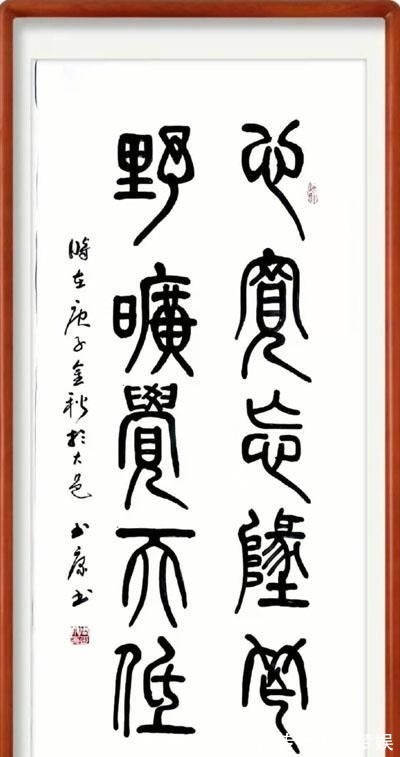 心寬忘墬窄
野曠覺天低
時在庚子金秋於大邑 玉康书